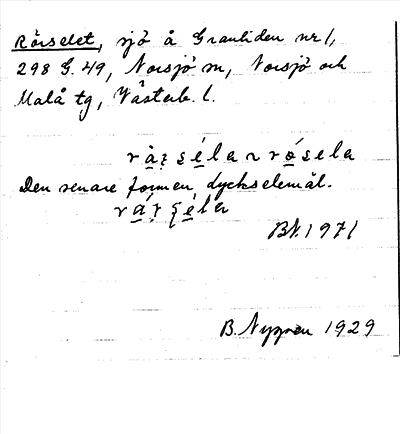 Rörselet, sjö å Granliden nr 1,
298 G. 49, Norsjö sn, Norsjö och
Malå tg, Västerb. l.
rå̀ʒséla ~ rǿsela
Den senare formen lyckselemål.
rǻʒ̣ṣéla
BN. 1971
B. Nygren 1929